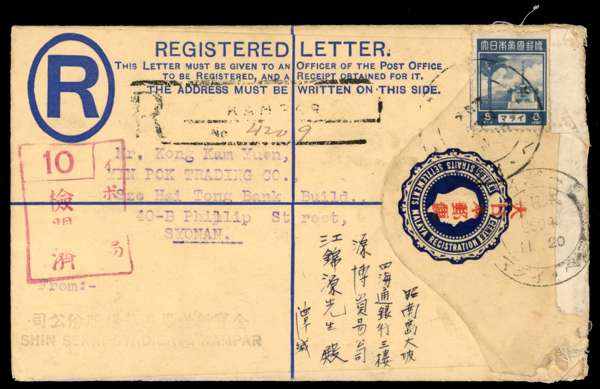 REGISTERED LETTER.
THIS LETTER MUST BE GIVEN TO AN OFFICER OF THE POST OFFICE
TO BE REGISTERED, AND A RECEIPT OBTAINED FOR IT.
THE ADDRESS MUST BE WRITTEN ON THIS SIDE.
R
大日本帝國郵便
マライ
R
KAMPAR
No 4209
10
イポ
検
閲
済
局
Mr. Kong Kam Yuen,
YIN POK TRADING CO.,
Sze Hai Tong Bank Build.,
40-B Phillip Street,
SYONAN.
From:-
STRAITS SETTLEMENTS
MALAYA REGISTRATION
大日本郵便
11 20
昭南島大坡
四海通銀行三樓
源博貿易公司
江錦源先生殿
SHIN SENN SYNDICATE KAMPAR